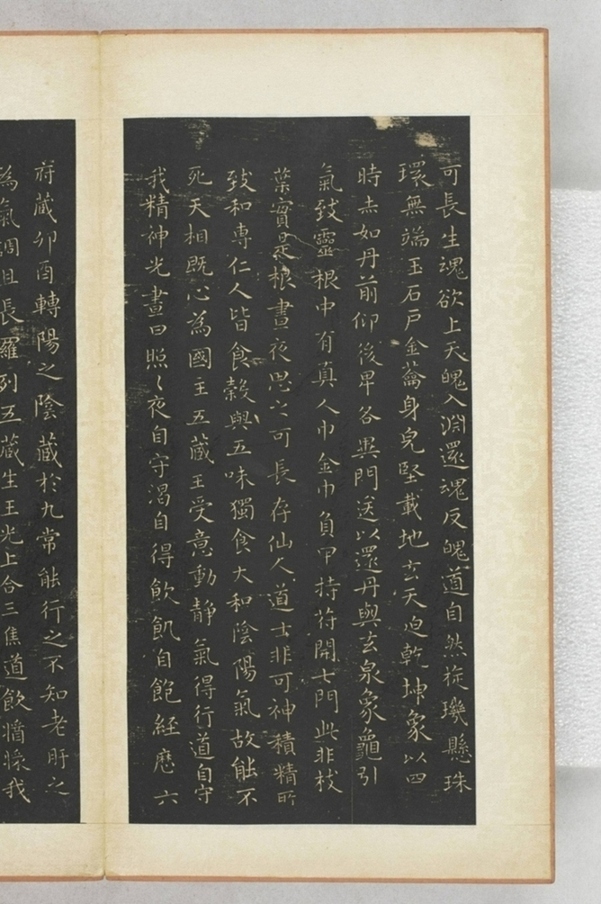 可長生魂欲上天魄入淵還魂反魄道自然㨔璣懸珠
環無端玉石戶金籥身皃堅載地玄天迫乾坤象以四
時赤如丹前仰後卑各異門送以還丹與玄泉象龜引
氣致靈根中有真人巾金巾負甲持苻開七門此非枝
葉實是根晝夜思之可長存仙人道士非可神積精所
致和專仁人皆食穀與五味獨食大和陰陽氣故能不
死天相既心為國主五藏王受意動靜氣得行道自守
我精神光晝日照照夜自守渴自得飲飢自飽經歷六
苻藏卯酉轉陽之陰藏於九常能行之不知老肝之
為氣調且長羅列五藏生王光上合三焦道飲醬漿我